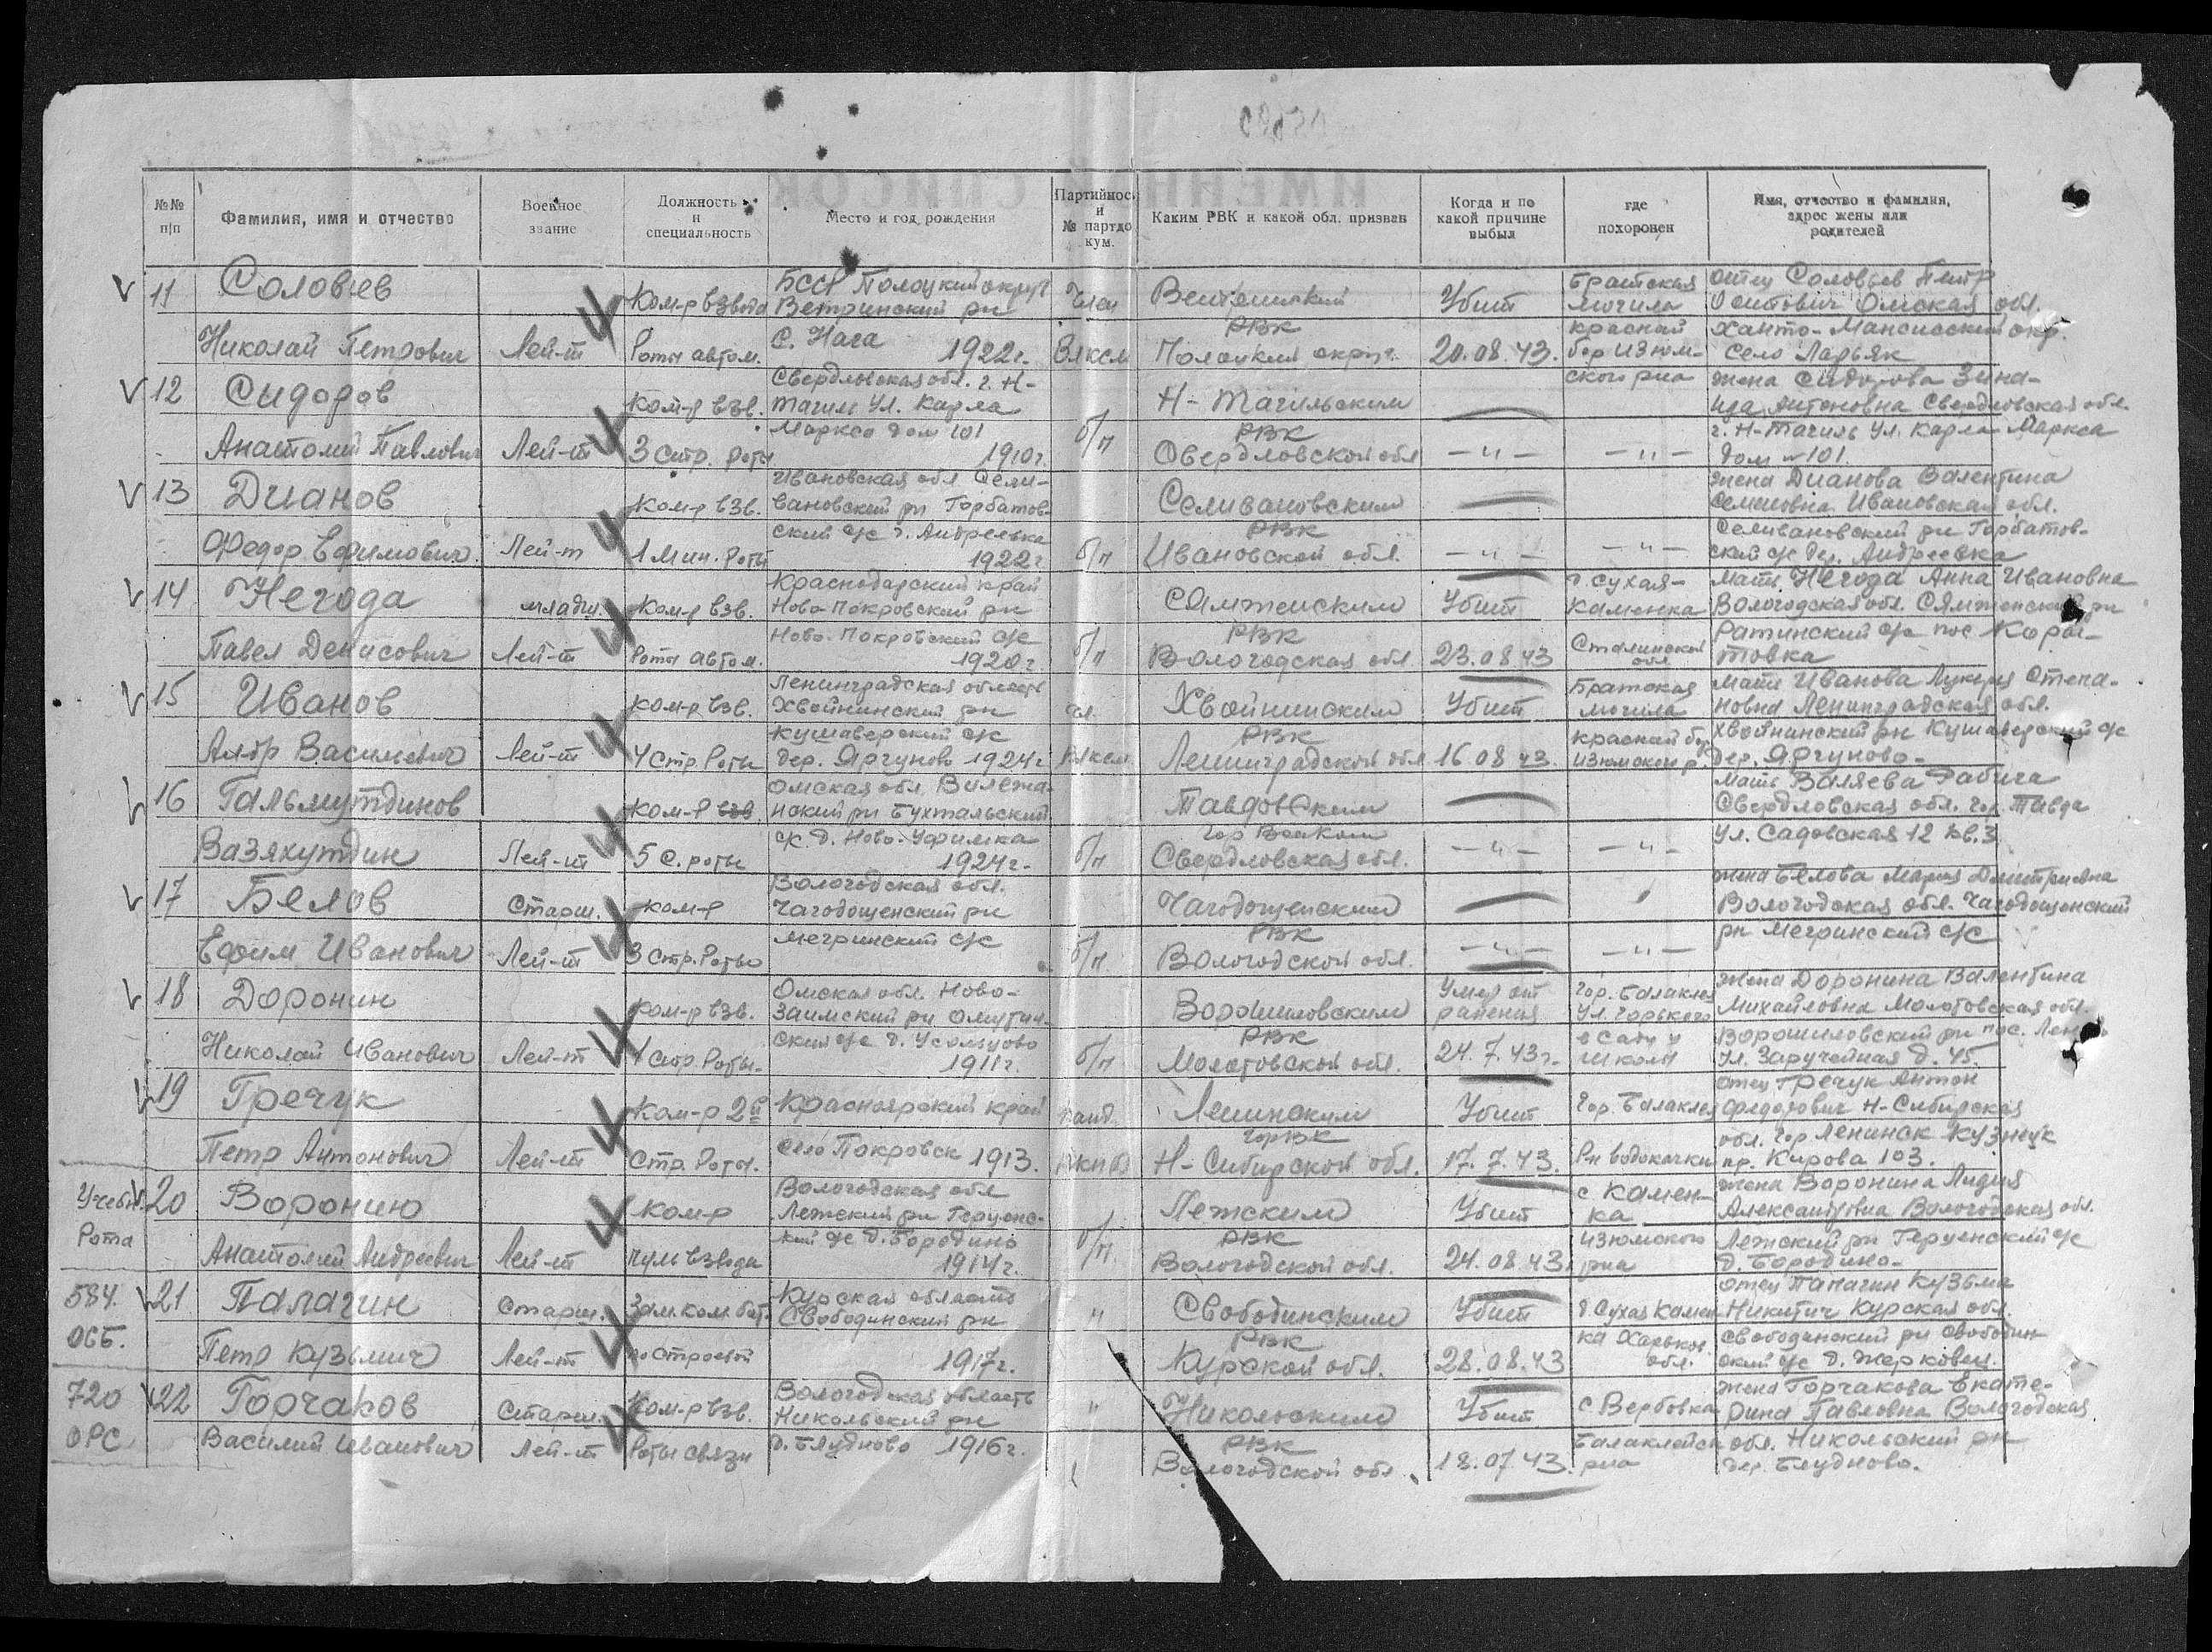 №№ п/п
Фамилия, имя и отчество
Военное звание
Должность и специальность
Место и год рождения
Партийность и № партдокум.
Каким РВК и какой обл. призван
Когда и по какой причине выбыл
где похоронен
Имя, отчество и фамилия, адрес жены или родителей
11 Соловьев Ком-р взвода БССР Полоцкий округ Ветринский рн Член Убит Братская могила отец Соловьев Петр
Николай Петрович Лей-т Роты автом. С. Нача 1922г. Влксм РВК Полоцкий округ. 20.08.43. красный бор Изюмского рна Омская обл. Ханто-Мансийский окр. село Ларьяк
12 Сидоров Ком-р взв. Свердловская обл. г. Н-Тагил ул. Карла Маркса дом 101 Н-Тагильским жена Сидорова Зинаида Антоновна Свердловская обл.
Анатолий Павлович Лей-т 3 стр. роты 1910г. б/п РВК Свердловской обл — " — — " — г. Н-Тагиль ул. Карла Маркса дом №101.
13 Дианов Ком-р взв. Ивановская обл Селивановский рн Горбатовский с/с д. Андреевка Селивановским жена Дианова Валентина Семеновна Ивановская обл.
Федор Ефимович. Лей-т 1 Мин. Роты 1922г б/п РВК Ивановской обл. — " — — " — Селивановский рн Горбатовский с/с дер. Андреевка
14 Негода младш. Ком-р взв. Краснодарский край Ново-Покровский рн Ново-Покровский с/с Сямженским Убит д. Сухая-Каменка мать Негода Анна Ивановна
Павел Денисович Лей-т Роты автом. 1920г. б/п РВК Вологодская обл. 23.08.43 Сталинской обл Вологодская обл. Сямженский рн Ратинский с/с пос.
15 Иванов ком-р взв. Ленинградская область Хвойнинский рн Кушаверский с/с Хвойнинским Убит Братская могила мать Иванова Лукерья Степановна Ленинградская обл.
Ал-др Василевич Лей-т 4 Стр. Роты дер. Яргуново 1924г Влксм РВК Ленинградской обл 16.08.43. красный бор Изюмского р. Хвойнинский рн Кушаверский с/с дер. Яргуново-
16 Гальмутдинов ком-р взв. Омская обл. Бухтальский с/к. д. Ново-Уфимка Тавдовским мать Валяева Рабига Свердловская обл. гор. Тавда
Вазяхутдин Лей-т 5 с. роты 1924г. б/п Свердловская обл. — " — — " — ул. Садовская 12 кв. 3
17 Белов Старш. ком-р Вологодская обл. Чагодощенский рн Мегринский с/с Чагодощенский жена Белова Мария Дмитриевна
Ефим Иванович Лей-т 3 Стр. Роты б/п. РВК Вологодской обл. — " — — " — Вологодская обл. Чагодощенский рн Мегринский с/с
18 Доронин Ком-р взв. Омская обл. Ново-Заимский рн с/с д. Усольцово Ворошиловским Умер от ранения гор. Балаклея ул. Горького жена Доронина Валентина Михайловна Молотовская обл.
Николай Иванович Лей-т 1 стр. Роты. 1911г. б/п РВК Молотовской обл. 24.7.43г. в саду у школы Ворошиловский рн пос. ул. Заручейная д. 45.
19 Гречук Ком-р 2й Красноярский край канд. Ленинским Убит Гор. Балаклея отец Гречук Антон Федорович Н-Сибирская
Петр Антонович Лей-т Стр. Роты. село Покровск 1913. ВКП(б) горвк Н-Сибирской обл. 17.7.43. Рн водокачки обл. гор Ленинск Кузнецк пр. Кирова 103.
Учебн. Рота
20 Воронин ком-р Вологодская обл Лежский рн с/с д. Бородино Лежским Убит с Каменка жена Воронина Лидия Александровна Вологодская обл.
Анатолий Андреевич Лей-т пульвзвода 1914г. б/п. РВК Вологодской обл. 24.08.43. Изюмского рна Лежский рн с/с д. Бородино.
584. ОСБ.
21 Палагин Старш. Зам. ком. бат. Курская область Свободинский рн " Свободинским Убит д Сухая Каменка Харьков. обл. отец Палагин Кузьма Никитич Курская обл.
Петр Кузьмич Лей-т по строевой 1917г. РВК Курской обл. 28.08.43 Свободинский рн Свободинский с/с д. Жерновец.
720 ОРС
22 Горчаков Старш. Ком-р взв. Вологодская область Никольский рн " Никольским Убит с. Вербовка жена Горчакова Екатерина Павловна Вологодская
Василий Иванович Лей-т Роты связи д. Блудново 1916г. РВК Вологодской обл. 18.07.43. Балаклейск рна обл. Никольский рн дер. Блудново.